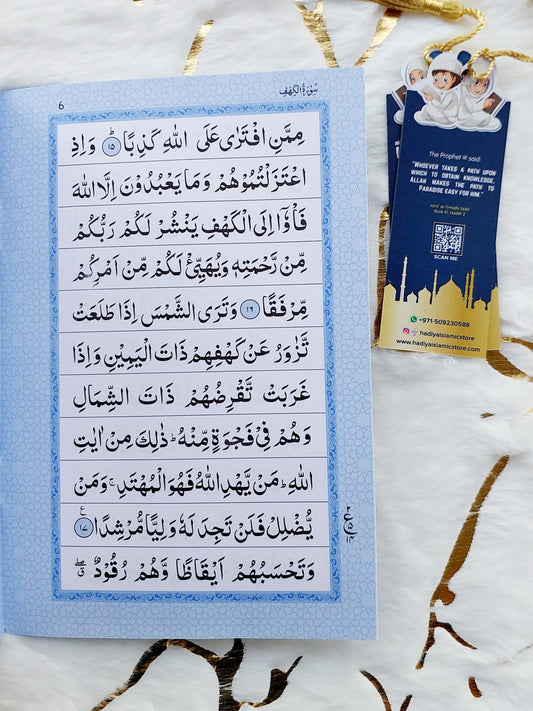 6
سُوْرَةُ الْكَهْفِ
مِمَّنِ افْتَرٰى عَلَى اللّٰهِ كَذِبًا ؕ ۱۵ وَ اِذِ
اعْتَزَلْتُمُوْهُمْ وَ مَا يَعْبُدُوْنَ اِلَّا اللّٰهَ
فَاْوٗۤا اِلَى الْكَهْفِ يَنْشُرْ لَكُمْ رَبُّكُمْ
مِّنْ رَّحْمَتِهٖ وَ يُهَيِّئْ لَكُمْ مِّنْ اَمْرِكُمْ
مِّرْفَقًا ۱۶ وَ تَرَى الشَّمْسَ اِذَا طَلَعَتْ
تَّزٰوَرُ عَنْ كَهْفِهِمْ ذَاتَ الْيَمِيْنِ وَ اِذَا
غَرَبَتْ تَّقْرِضُهُمْ ذَاتَ الشِّمَالِ
وَ هُمْ فِيْ فَجْوَةٍ مِّنْهُ ؕ ذٰلِكَ مِنْ اٰيٰتِ
اللّٰهِ ؕ مَنْ يَّهْدِ اللّٰهُ فَهُوَ الْمُهْتَدِ ۚ وَ مَنْ
يُّضْلِلْ فَلَنْ تَجِدَ لَهٗ وَلِيًّا مُّرْشِدًا ۱۷ ع
وَ تَحْسَبُهُمْ اَيْقَاظًا وَّ هُمْ رُقُوْدٌ ۖ ق
The Prophet ﷺ said:
"WHOEVER TAKES A PATH UPON
WHICH TO OBTAIN KNOWLEDGE,
ALLAH MAKES THE PATH TO
PARADISE EASY FOR HIM."
SCAN ME
+971-509230588
hadiyaislamicstore
www.hadiyaislamicstore.com